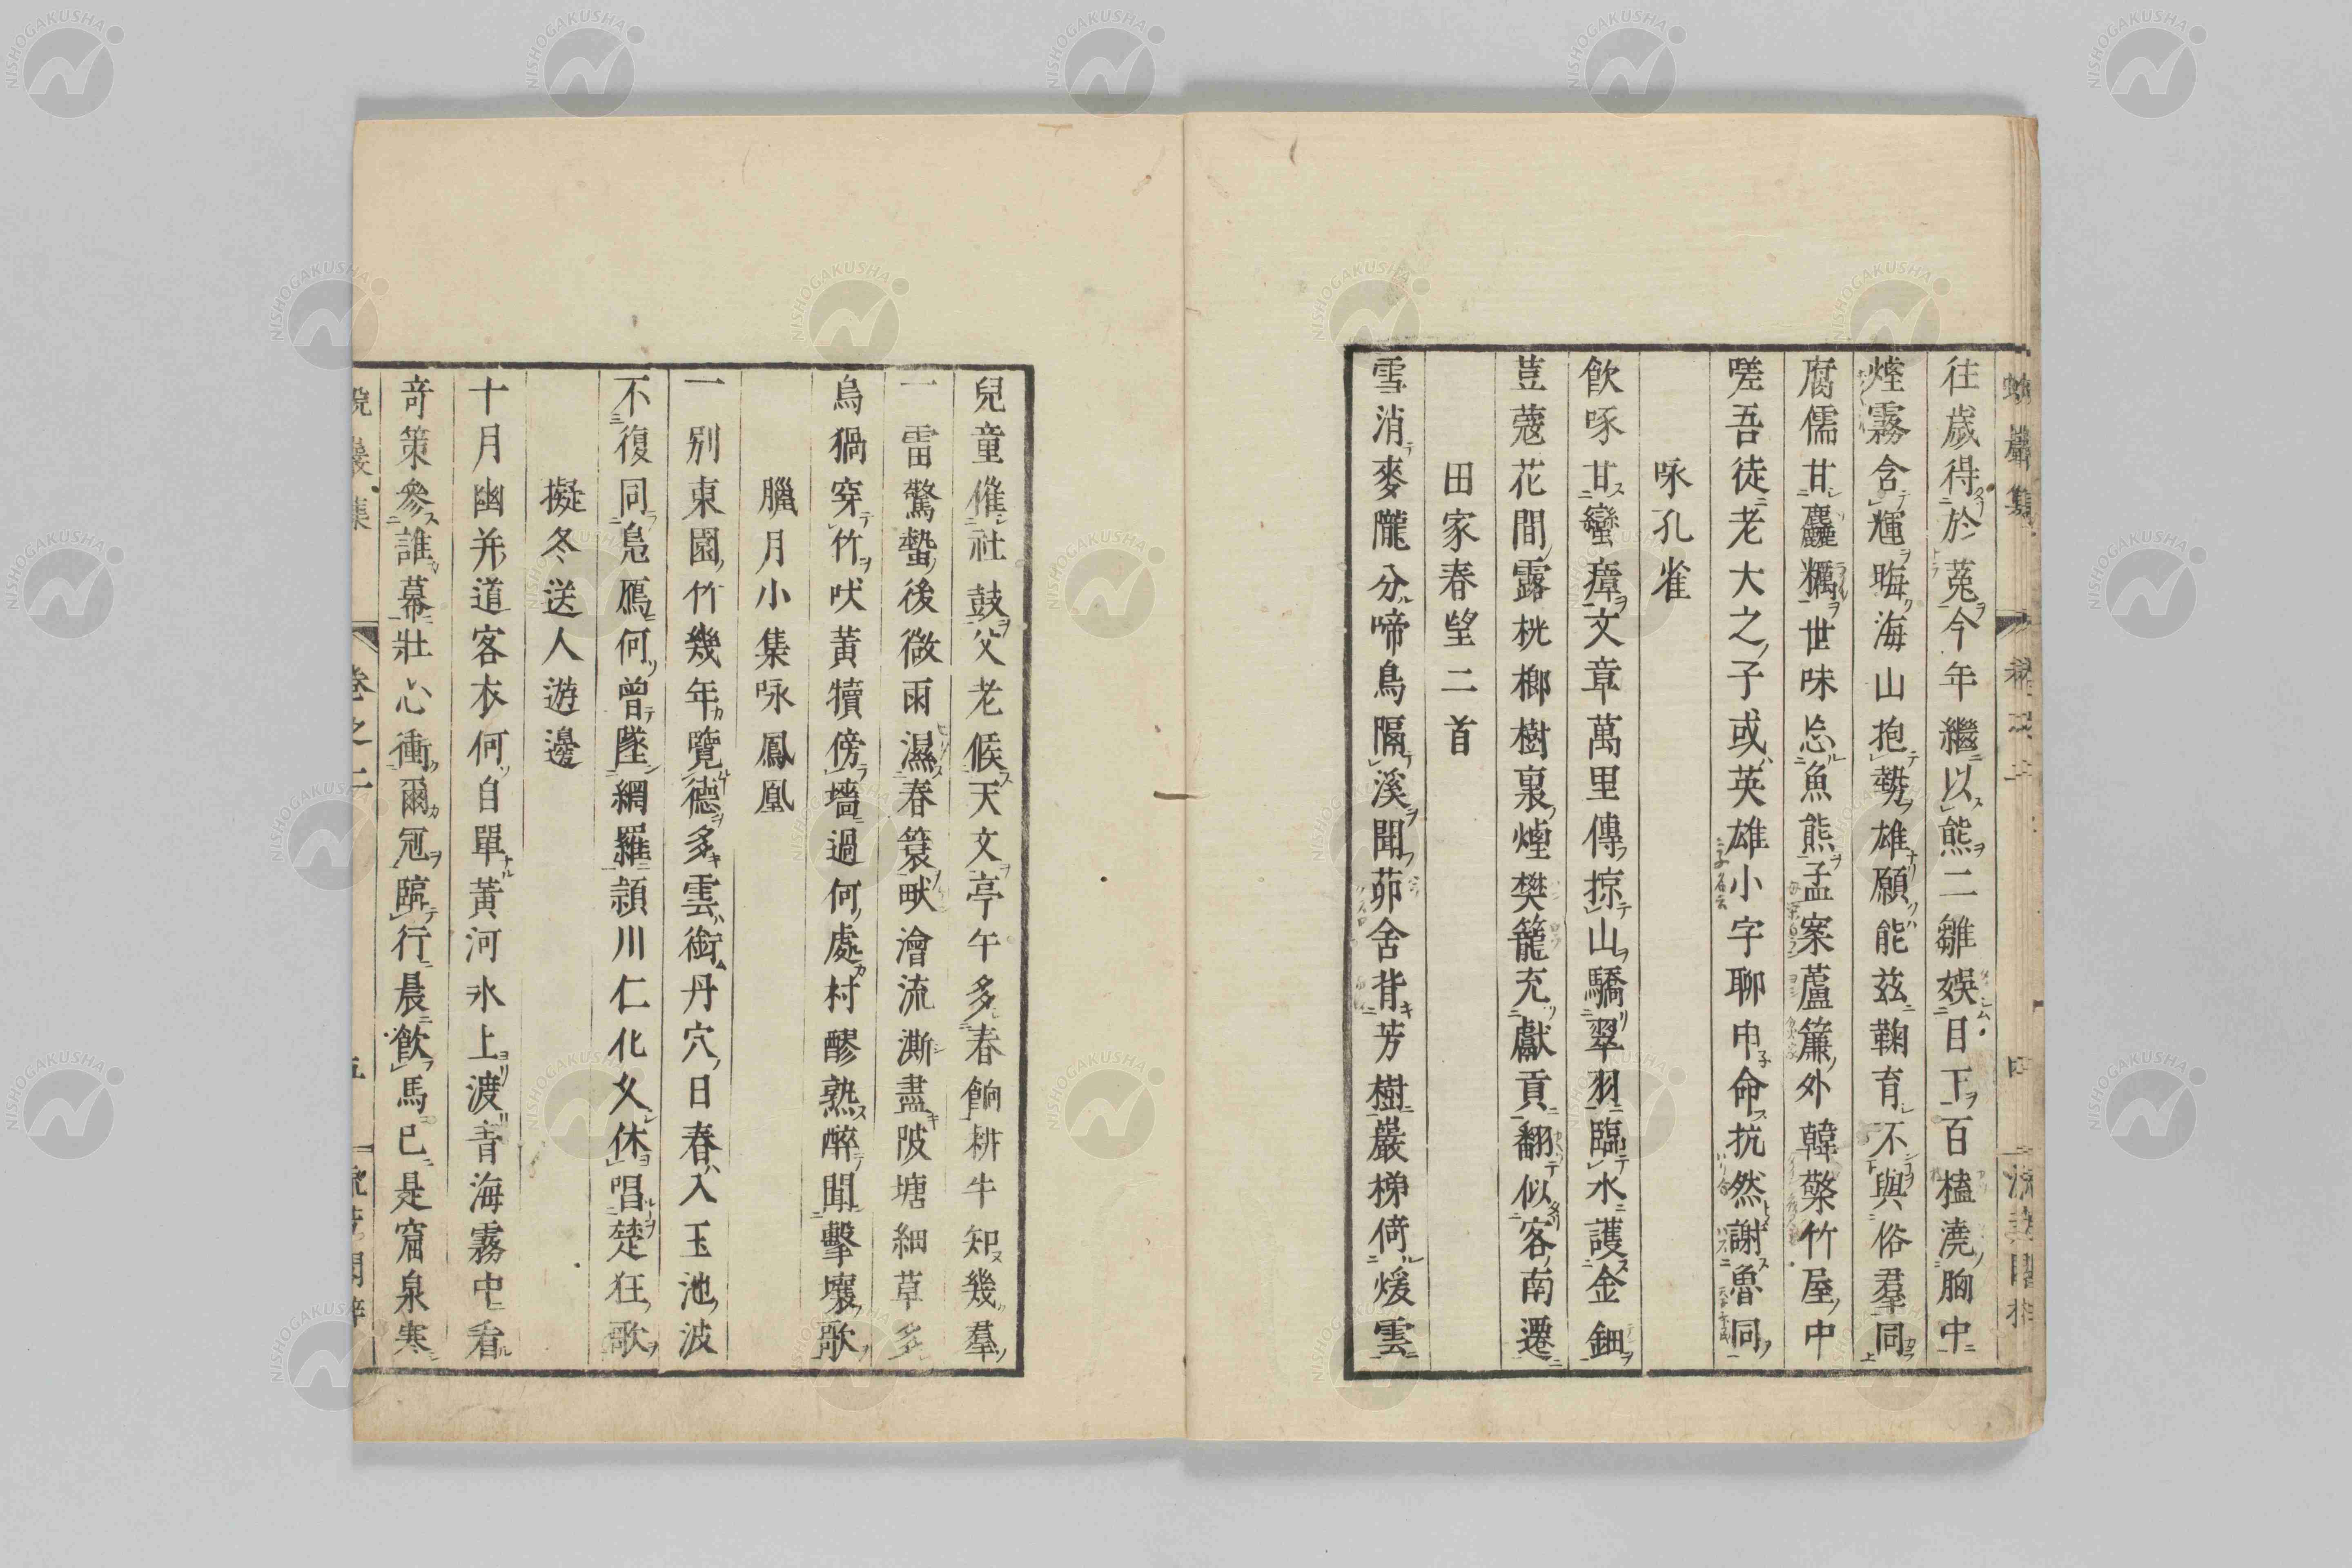 往歲得於菟今年繼以熊二雛娛目下百榼澆胸中
煙霧含輝晦海山抱勢雄願能茲鞠育不與俗羣同
腐儒甘麤糲世味忘魚熊孟案蘆簾外韓檠竹屋中
嗟吾徒老大之子或英雄小字聊申命抗然謝魯同
咏孔雀
飲啄甘蠻瘴文章萬里傳掠山驕翠羽臨水護金鈿
荳蔻花間露桄榔樹裏煙樊籠充獻貢翻似客南遷
田家春望二首
雪消麥隴分啼鳥隔溪聞茆舍背芳樹巖梯倚煖雲
兒童催社鼓父老候天文亭午多春餉耕牛知幾羣
一雷驚蟄後微雨濕春簑畎澮流澌盡陂塘細草多
烏猧穿竹吠黃犢傍墻過何處村醪熟醉聞擊壤歌
臘月小集咏鳳凰
一別東園竹幾年覽德多雲銜丹穴日春入玉池波
不復同鳧鴈何曾墜網羅潁川仁化久休唱楚狂歌
擬冬送人遊邊
十月幽幷道客衣何自單黃河氷上渡青海霧中看
奇策參誰幕壯心衝爾冠臨行晨飲馬已是窟泉寒